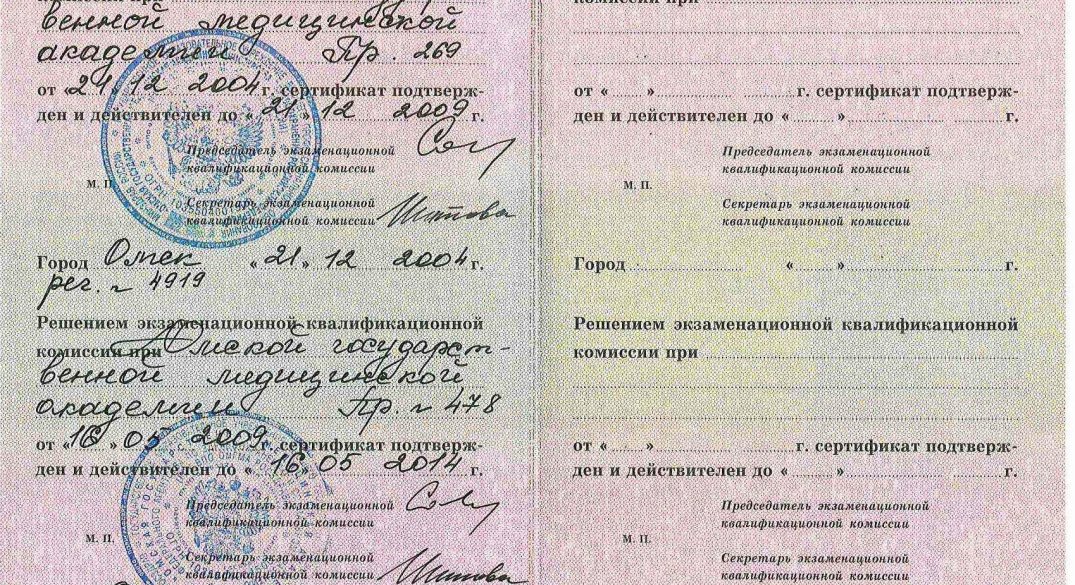 венной медицинской
академии Пр. 269
от «21» 12 2004 г. сертификат подтверж-
ден и действителен до «21» 12 2009 г.
Председатель экзаменационной
квалификационной комиссии
М. П.
Секретарь экзаменационной
квалификационной комиссии
Город Омск «21» 12 2004 г.
рег. № 4919
Решением экзаменационной квалификационной
комиссии при Омской государст-
венной медицинской
академии Пр. № 478
от «16» 05 2009 г. сертификат подтверж-
ден и действителен до «16» 05 2014 г.
Председатель экзаменационной
квалификационной комиссии
М. П.
Секретарь экзаменационной
квалификационной комиссии
комиссии при
от « » г. сертификат подтверж-
ден и действителен до « » г.
Председатель экзаменационной
квалификационной комиссии
М. П.
Секретарь экзаменационной
квалификационной комиссии
Город « » г.
Решением экзаменационной квалификационной
комиссии при
от « » г. сертификат подтверж-
ден и действителен до « » г.
Председатель экзаменационной
квалификационной комиссии
М. П.
Секретарь экзаменационной
квалификационной комиссии